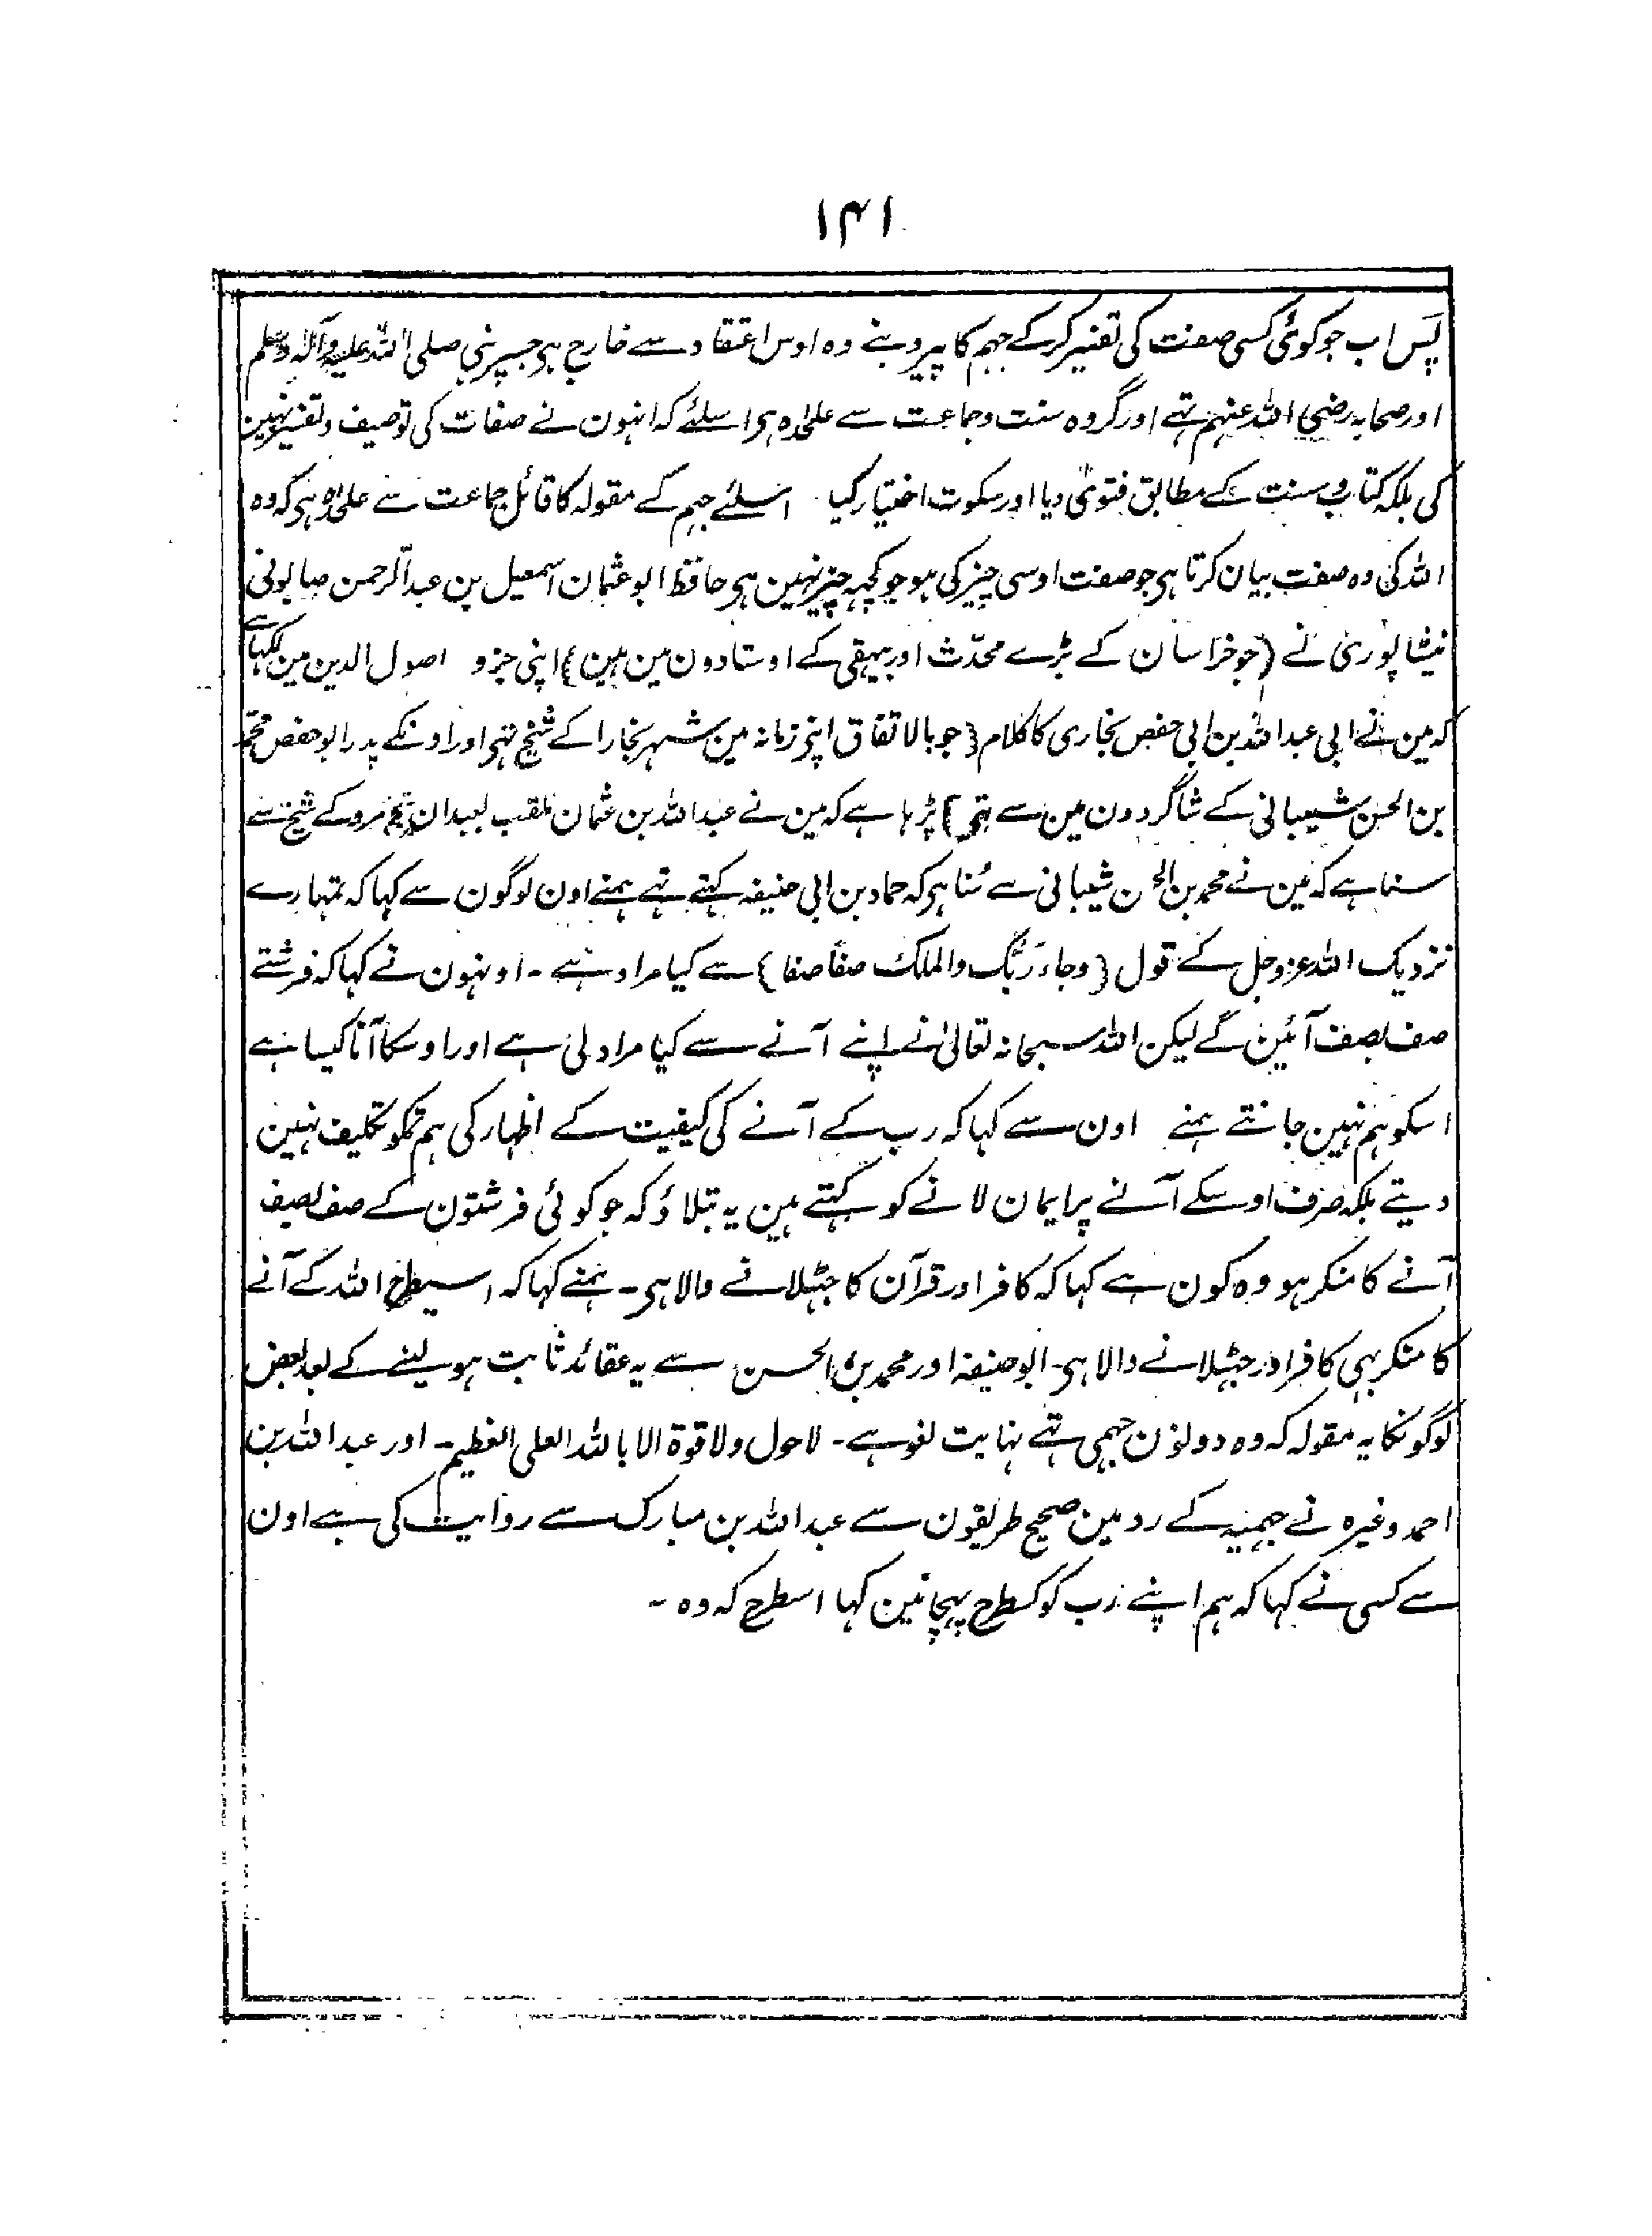 ۱۴۱
پس اب جو کوئی کسی صفت کی تفسیر کرکے جہم کا پیرو بنے وہ اوس اعتقاد سے خارج ہی جسپر نبی صلی اللہ علیہ وآلہ وسلم
اور صحابہ رضی اللہ عنہم تہے اور گروہ سنت وجماعت سے علٰحدہ ہی اسلئے کہ انہون نے صفات کی توصیف وتفسیر نہین
کی بلکہ کتاب وسنت کے مطابق فتویٰ دیا اور سکوت اختیار کیا اسلئے جہم کے مقولہ کا قائل جماعت سے علٰحدہ ہی کہ وہ
اللہ کی وہ صفت بیان کرتا ہی جو صفت اوسی چیز کی ہو جو کچہہ چیز نہین ہی حافظ ابو عثمان اسمعیل بن عبدالرحمن صابونی
نیشاپوری نے (جو خراسان کے بڑے محدّث اور بیہقی کے اوستادون مین ہین) اپنی جزو اصول الدین مین لکہا ہے
کہ مین نے ابی عبداللہ بن ابی حفص بخاری کا کلام (جو بالاتفاق اپنی زمانہ مین شہر بخارا کے شیخ تہی اور اونکے پدر ابو حفص محمد
بن الحسن شیبانی کے شاگردون مین سے تہی) پڑہا ہے کہ مین نے عبداللہ بن عثمان ملقب بعبدان مرو کے شیخ سے
سنا ہے کہ مین نے محمد بن الحسن شیبانی سے سُنا ہی کہ حماد بن ابی حنیفہ کہتے تہے ہمنے اون لوگون سے کہا کہ تمہارے
نزدیک اللہ عزوجل کے قول (وجاء رَبُّک والملک صفاً صفا) سے کیا مراد ہے - اونہون نے کہا کہ فرشتے
صف بصف آئین گے لیکن اللہ سبحانہ تعالیٰ نے اپنے آنے سے کیا مراد لی ہے اور اوسکا آنا کیسا ہے
اسکو ہم نہین جانتے ہمنے اون سے کہا کہ رب کے آنے کی کیفیت کے اظہار کی ہم تمکو تکلیف نہین
دیتے بلکہ صرف اوسکے آنے پر ایمان لانے کو کہتے ہین یہ بتلاؤ کہ جو کوئی فرشتون کے صف بصف
آنے کا منکر ہو وہ کون ہے کہا کہ کافر اور قرآن کا جہٹلانے والا ہی - ہمنے کہا کہ اسیطرح اللہ کے آنے
کا منکر بہی کافر اور جہٹلانے والا ہی - ابو حنیفہ اور محمد بن الحسن سے یہ عقائد ثابت ہو لینے کے بعد بعض
لوگونکا یہ مقولہ کہ وہ دونون جہمی تہے نہایت لغو ہے - لاحول ولا قوة الا باللہ العلی العظیم - اور عبداللہ بن
احمد وغیرہ نے جہمیہ کے رد مین صحیح طریقون سے عبداللہ بن مبارک سے روایت کی ہے اون
سے کسی نے کہا کہ ہم اپنے رب کو کسطرح پہچانین کہا اسطرح کہ وہ -